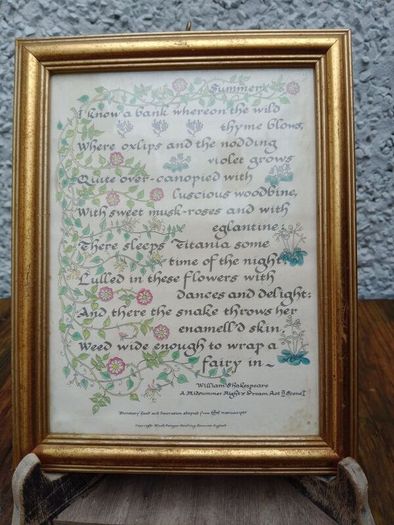 Summer
I know a bank whereon the wild
thyme blows,
Where oxlips and the nodding
violet grows
Quite over-canopied with
luscious woodbine,
With sweet musk-roses and with
eglantine;
There sleeps Titania some
time of the night
Lulled in these flowers with
dances and delight;
And there the snake throws her
enamell'd skin,
Weed wide enough to wrap a
fairy in~
William Shakespeare
A Midsummer Night's Dream. Act II Scene I
and Decoration adapted from manuscripts
Copyright